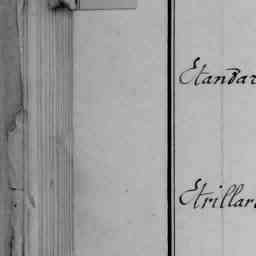 Etandar
Etrillar